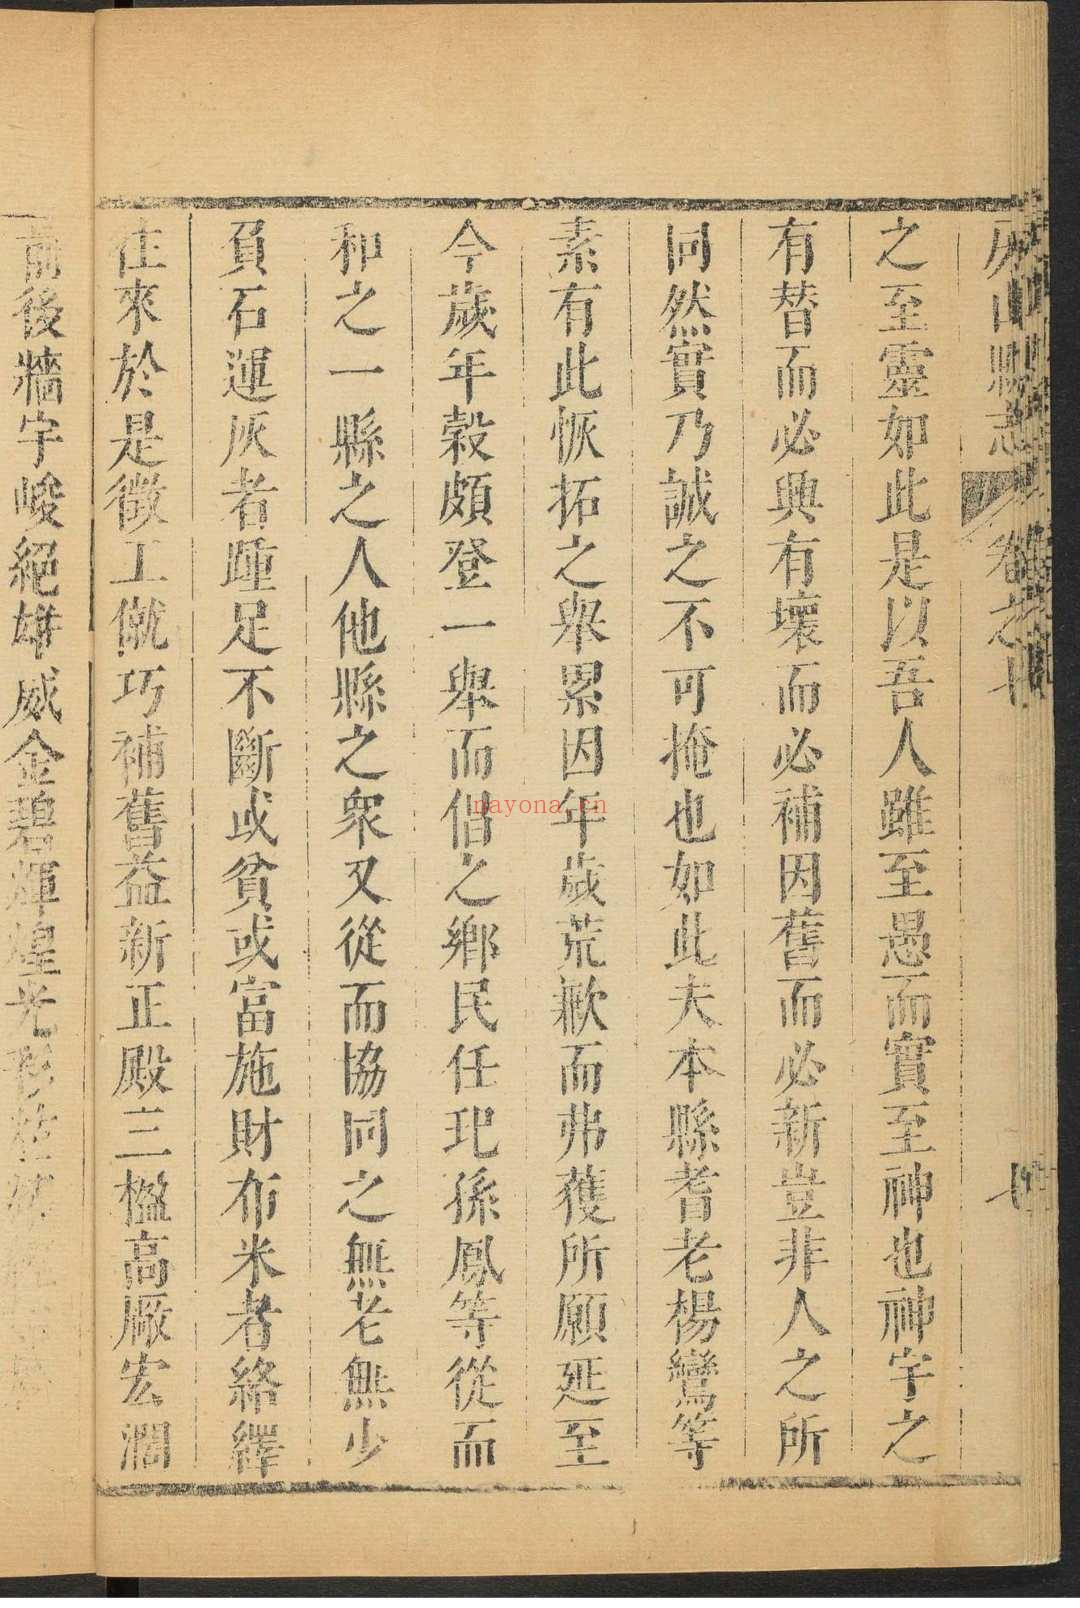 山縣志 卷之七
七
之至靈如此是以吾人雖至愚而實至神也神宇之
有替而必興有壞而必補因舊而必新豈非人之所
同然實乃誠之不可掩也如此夫本縣耆老楊鸞等
素有此恢拓之舉累因年歲荒歉而弗獲所願延至
今歲年穀頗登一舉而倡之鄉民任玘孫鳳等從而
和之一縣之人他縣之衆又從而協同之無老無少
負石運灰者踵足不斷或貧或富施財布米者絡繹
往來於是徵工僦巧補舊益新正殿三楹高厰宏濶
前後牆宇峻絕雄威金碧輝煌光彩
nayona.cn